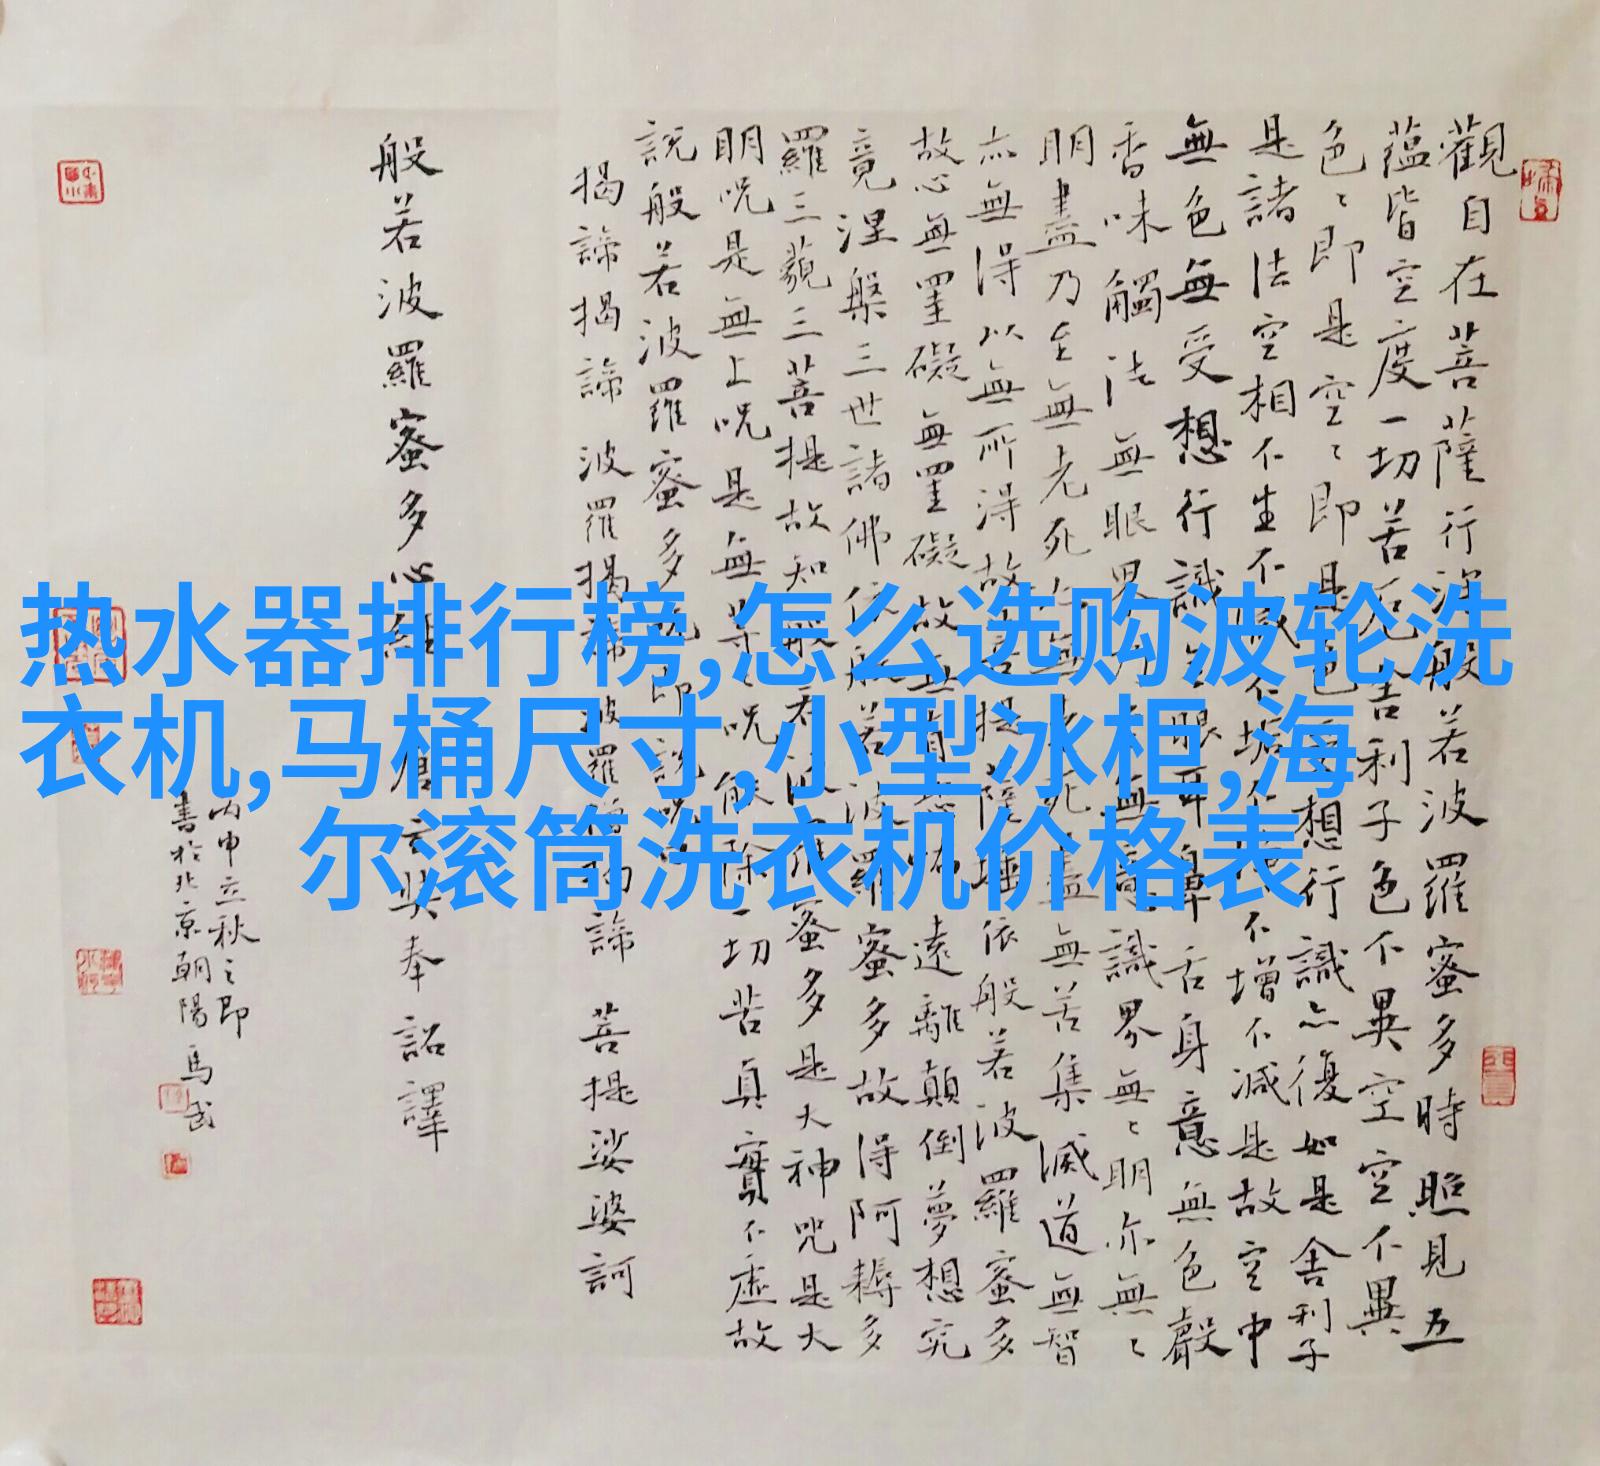 觀自在菩薩行深般若波羅蜜多時照見五
蘊皆空度一切苦厄舍利子色不異空空不異
色〻即是空〻即是色受想行識亦復如是舍利子
是諸法空相不生不滅不垢不淨不增不減是故空中
無色無受想行識無眼耳鼻舌身意無色聲
香味觸法無眼界乃至無意識界無〻明亦無〻
明盡乃至無老死亦無老死盡無苦集滅道無智
亦無得以無所得故菩提薩埵依般若波羅蜜多
故心無罣礙無罣礙故無有恐怖遠離顛倒夢想究
竟涅槃三世諸佛依般若波羅蜜多故得阿耨多
羅三藐三菩提故知般若波羅蜜多是大神咒是大
明呪是無上呪是無等〻呪能除一切苦真實不虛故
說般若波羅蜜多呪即說呪曰
揭諦揭諦波羅揭諦波羅僧揭諦菩提娑婆訶
般若波羅蜜多心經唐玄奘奉詔譯
丙申立秋之即
書於北京朝陽馬武
热水器排行榜,怎么选购波轮洗
衣机,马桶尺寸,小型冰柜,海
尔滚筒洗衣机价格表